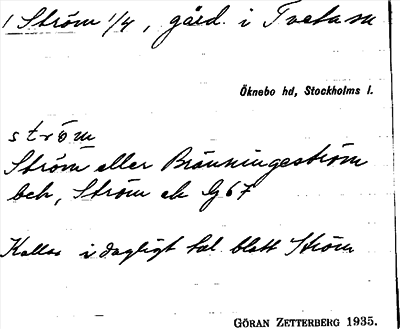 1 Ström 1/4, gård i Tveta sn
Öknebo hd, Stockholms l.
ström
Ström eller Bränningeström
beh, Ström ek Lg 67
Kallas i dagligt tal blott Ström
GÖRAN ZETTERBERG 1935.